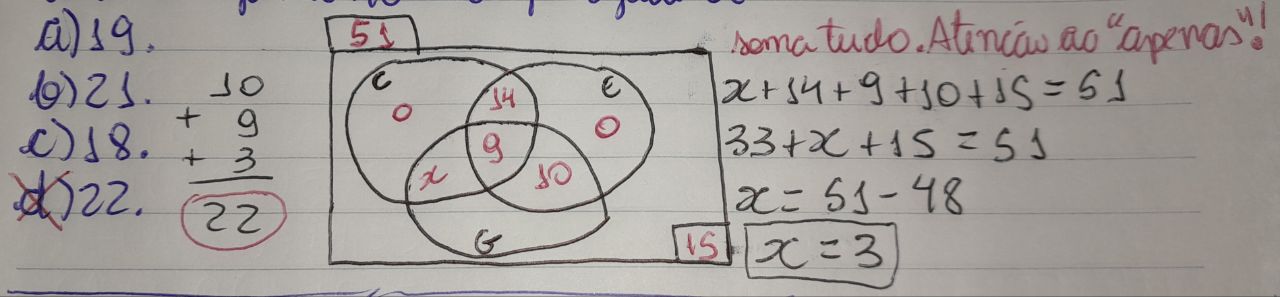 a) 19.
b) 21.
c) 18.
d) 22.
10
+ 9
+ 3
22
51
C
E
0
14
0
9
x
10
G
15
soma tudo. Atenção ao "apenas"!
x+14+9+10+15=51
33+x+15=51
x=51-48
x=3